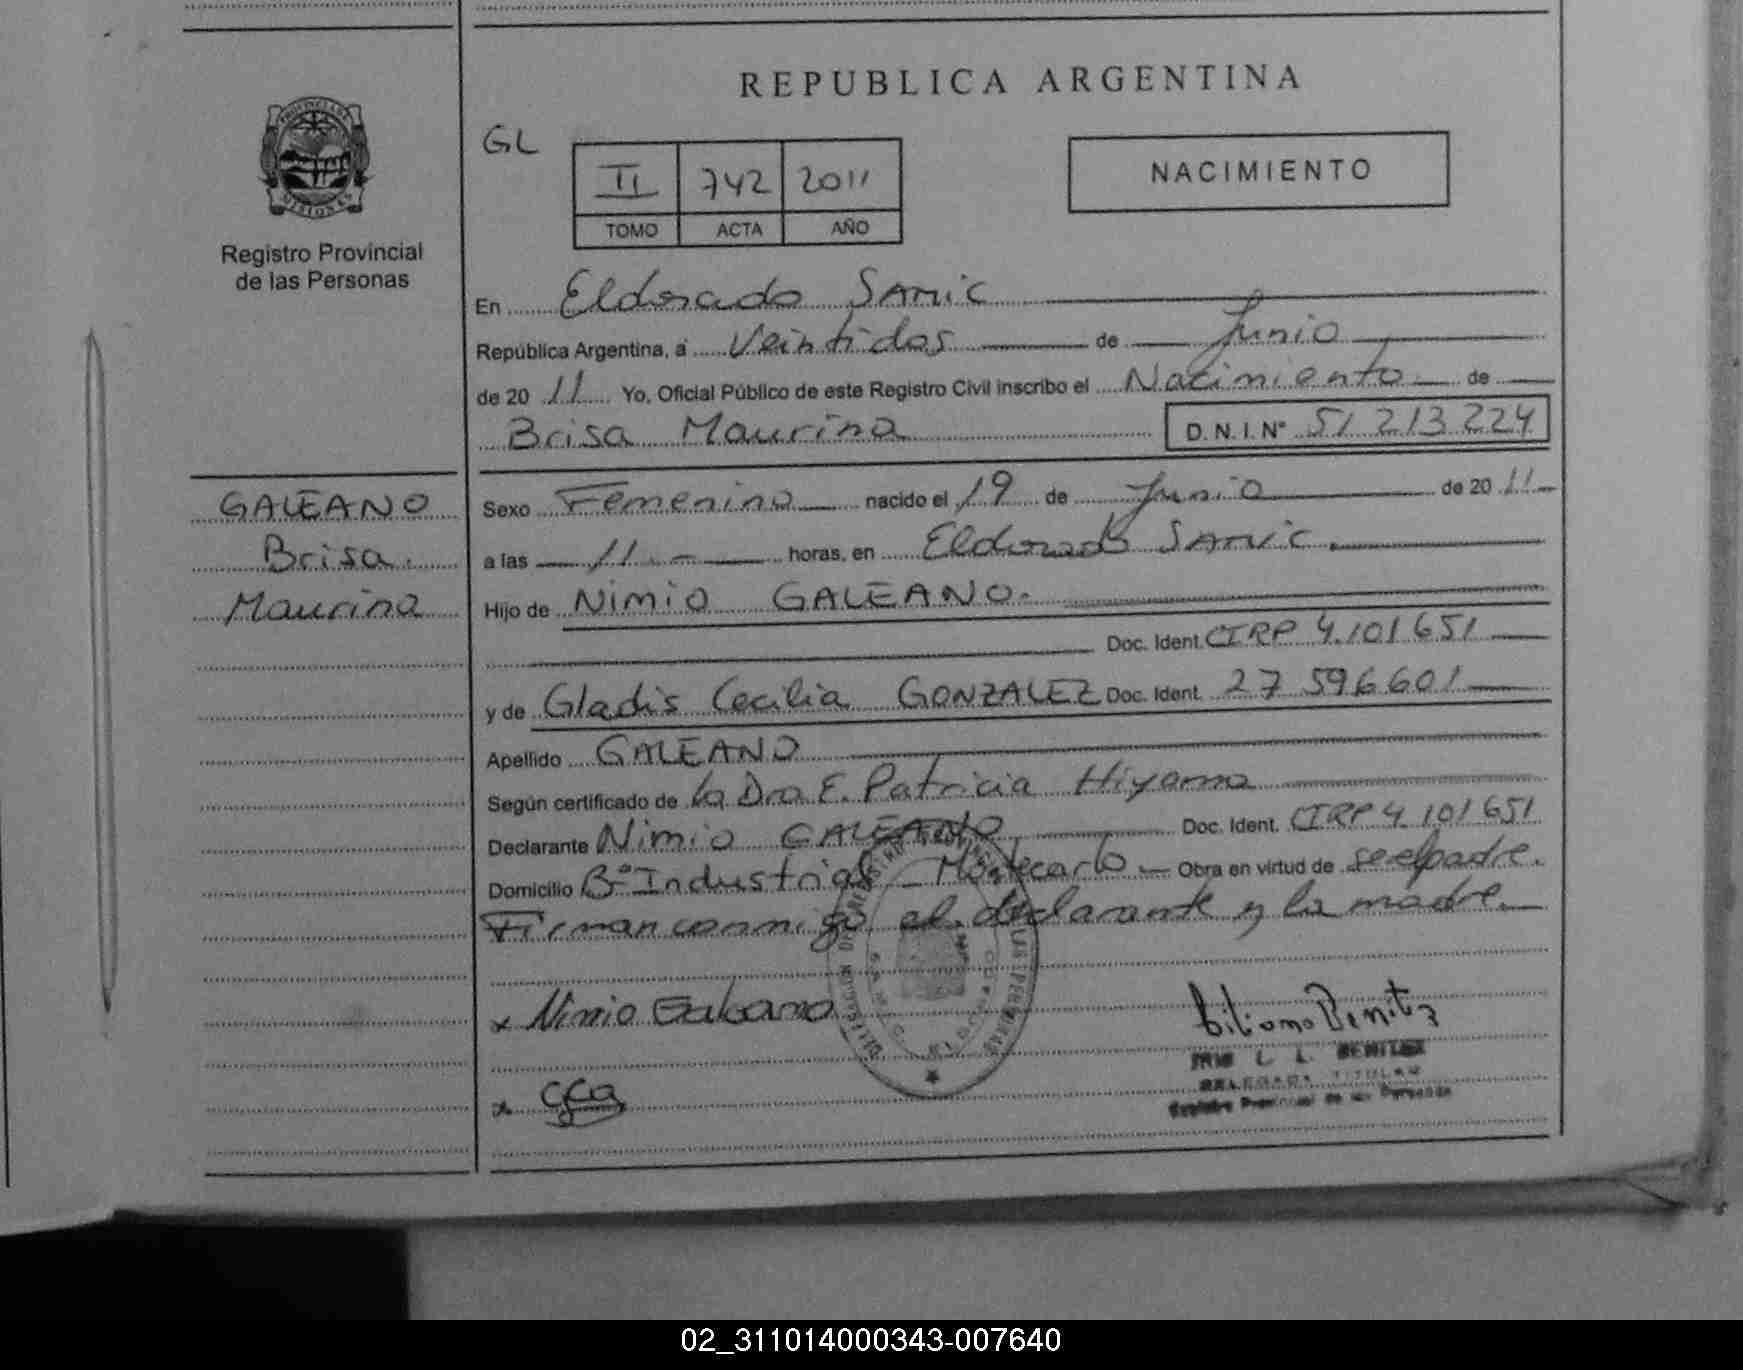 REPUBLICA ARGENTINA
PROVINCIA DE
MISIONES
Registro Provincial
de las Personas
GL
II 742 2011
TOMO ACTA AÑO
NACIMIENTO
En Eldorado SAMIC
República Argentina, a Veintidos de Junio
de 20 11 Yo, Oficial Público de este Registro Civil inscribo el Nacimiento de
Brisa Maurina D.N.I. Nº 51 213 224
GALEANO
Brisa.
Maurina
Sexo Femenino nacido el 19 de Junio de 20 11
a las 11.- horas, en Eldorado SAMIC.
Hijo de Nimio GALEANO.
Doc. Ident. CIRP 4.101.651
y de Gladis Cecilia GONZALEZ Doc. Ident. 27 596 601
Apellido GALEANO
Según certificado de la Dra E. Patricia Hiyama
Declarante Nimio GALEANO Doc. Ident. CIRP 4 101 651
Domicilio Bº Industrial - Montecarlo - Obra en virtud de se el padre.
Firman conmigo el declarante y la madre.
x Nimio Galeano
Liliana Benitez
L. L. BENITEZ
DELEGADA TITULAR
Registro Provincial de las Personas
x
02_311014000343-007640